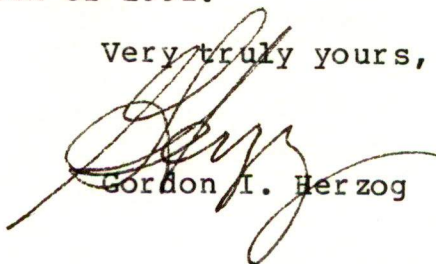 Very truly yours,
Gordon I. Herzog